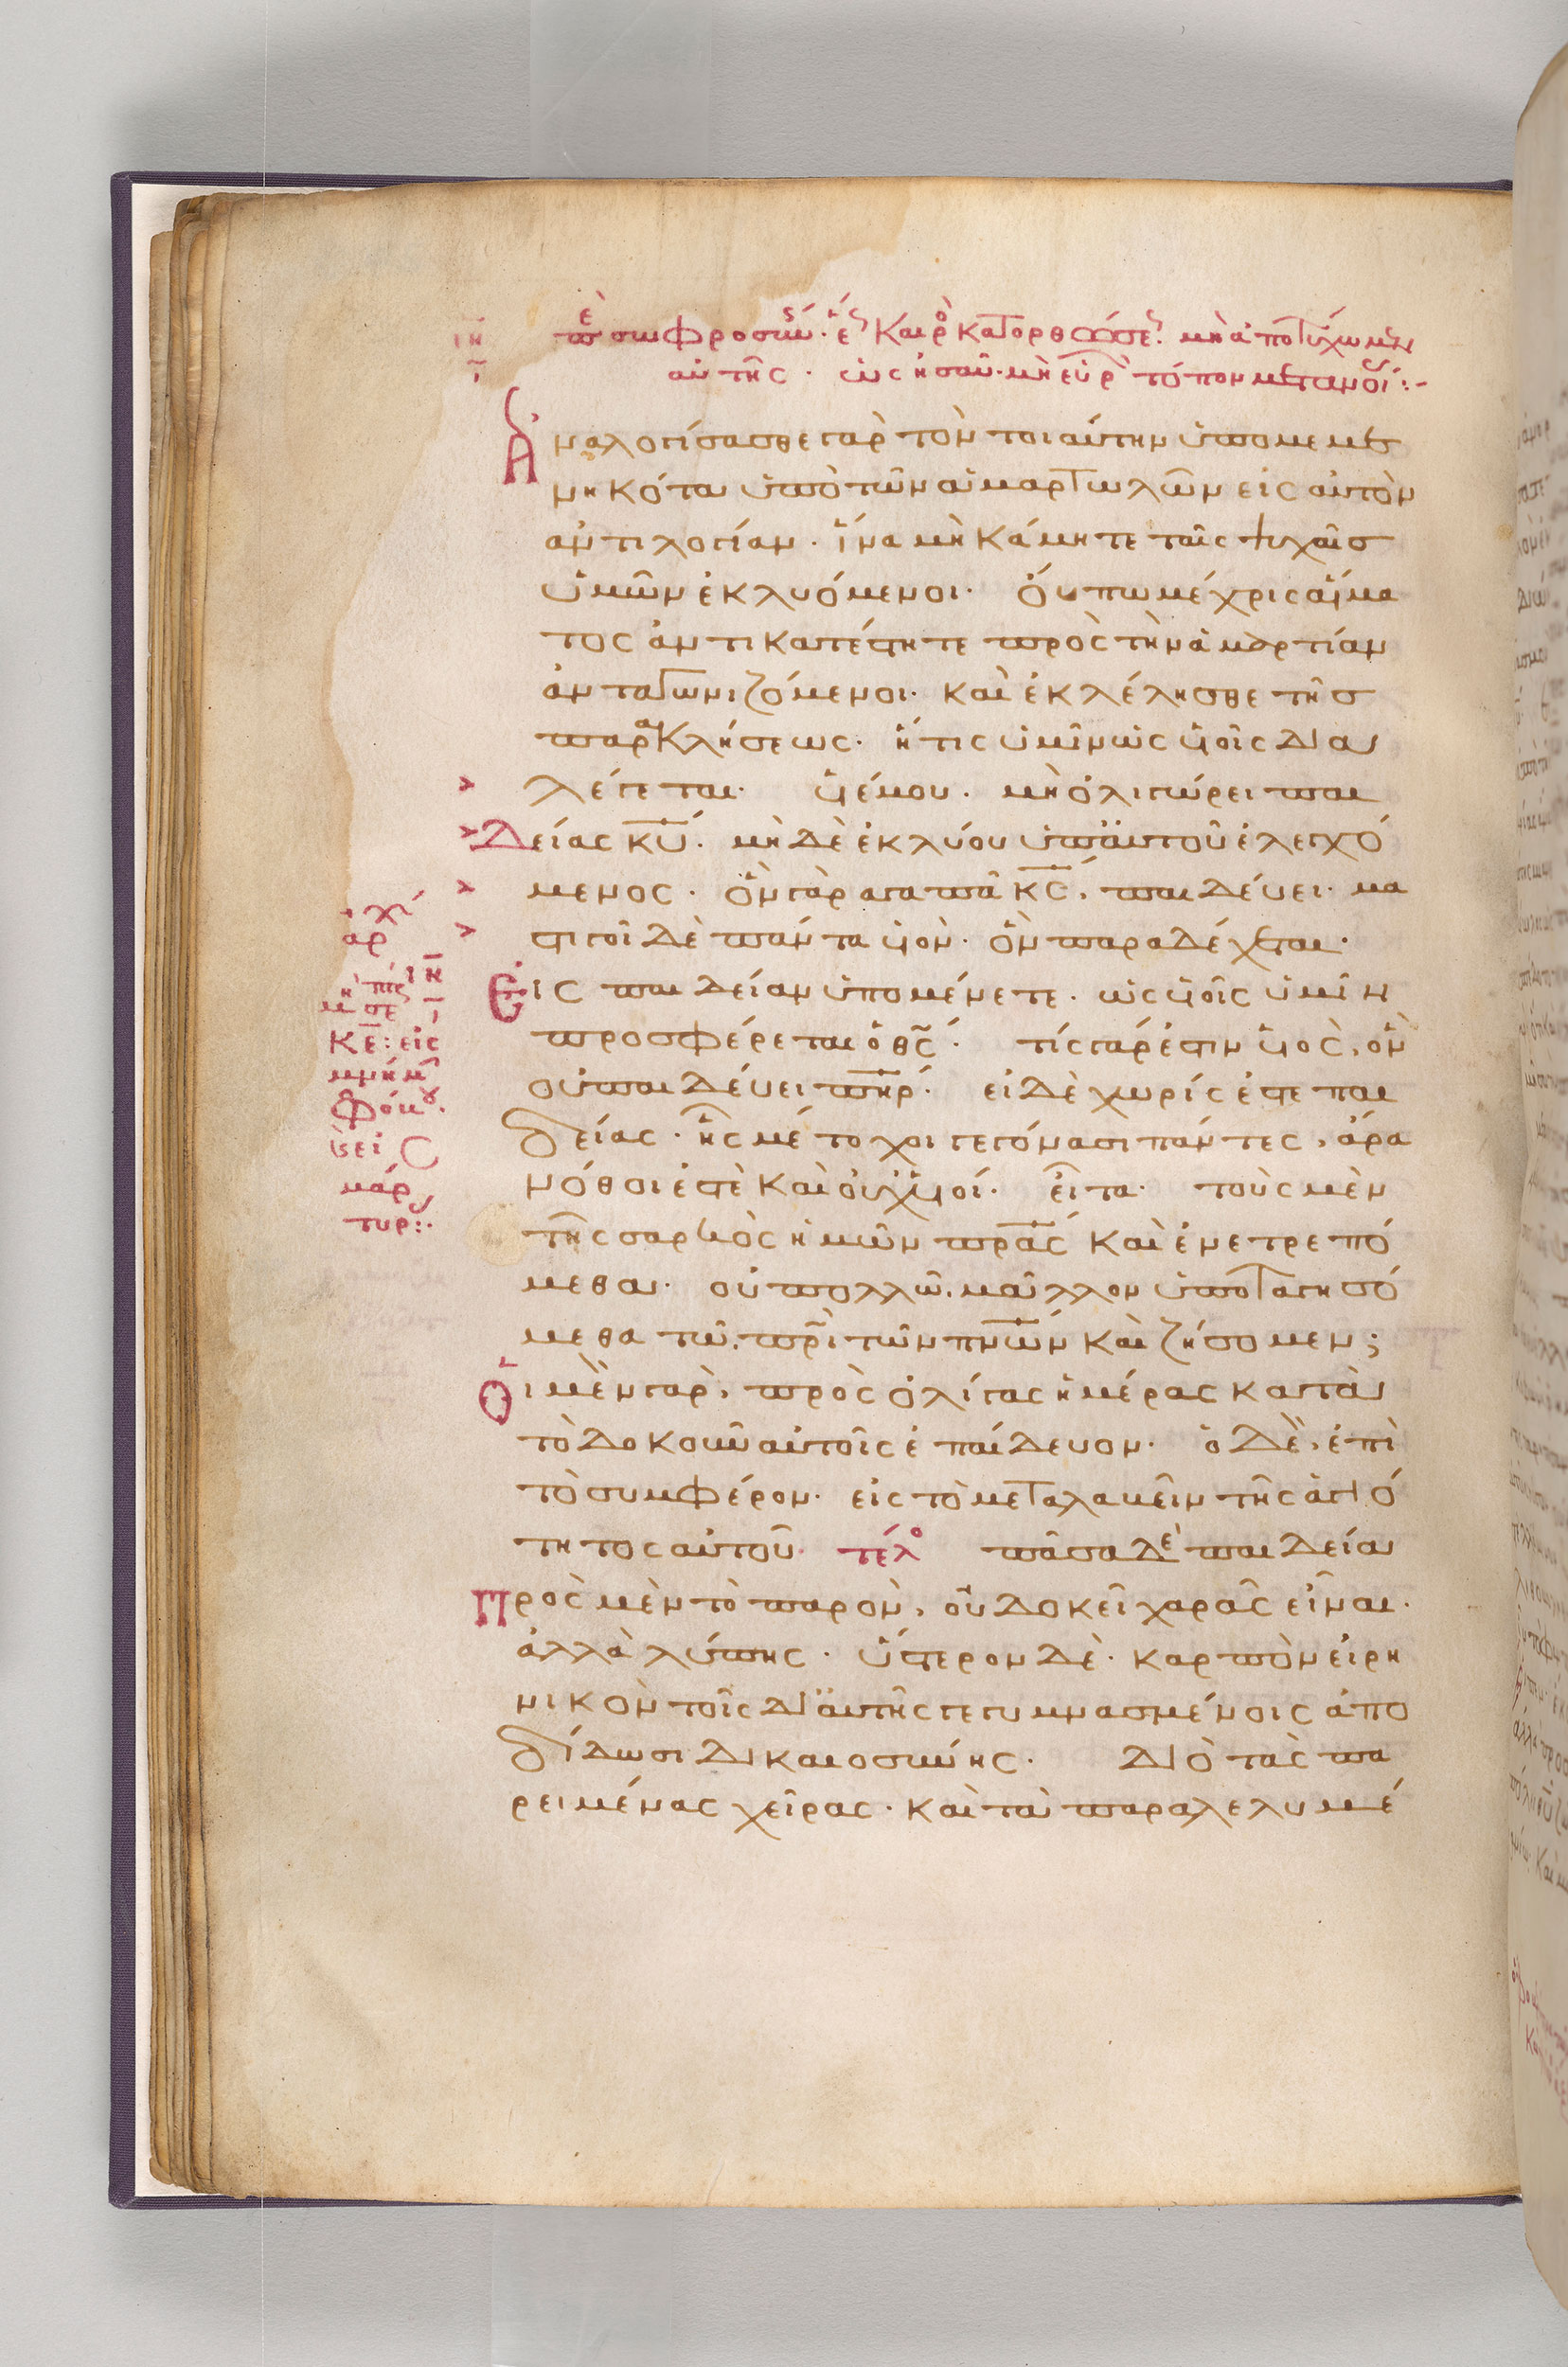 ιη
πε σωφροσύν· ἕς καιρὸ κατορθώσε· μὴ ἀποτύχωμεν
αὐτῆς· ὡς ἡσαῦ· μὴ εὑρὼ τόπον μετανοί:-
Ἀναλογίσασθε γὰρ τὸν τοιαύτην ὑπομεμε
νηκότα ὑπὸ τῶν ἁμαρτωλῶν εἰς αὐτὸν
ἀντιλογίαν· ἵνα μὴ κάμητε ταῖς ψυχαῖσ
ὑμῶν ἐκλυόμενοι· ὄυπω μέχρις αἵμα
τος ἀντικατέστητε πρὸς τὴν ἁμαρτίαν
ἀνταγωνιζόμενοι· καὶ ἐκλέλησθε τῆσ
παρακλήσεως· ἥτις ὑμῖν ὡς υἱοῖς δια
λέγεται· υἱέ μου· μὴ ὀλιγώρει παι
δείας κ̅υ̅· μὴ δὲ ἐκλύου ὑπ' αυτοῦ ἐλεγχό
μενος· ὃν γὰρ αγαπᾶ κ̅ς̅, παιδέυει· μα
στιγοῖ δὲ πάντα υἱὸν· ὃν παραδέχεται·
Εἰς παιδείαν ὑπομένετε· ὡς υἱοῖς ὑμῖν
προσφέρεται ὁ θ̅ς̅· τίς γάρ ἐστιν υἱὸς, ὃν
οὐ παιδέυει π̅η̅ρ̅· εἰ δὲ χωρίς ἐστε παι
δείας· ἧς μέτοχοι γεγόνασι πάντες, ἄρα
νόθοι ἐστὲ καὶ οὐχ υἱοί· εἶτα· τοὺς μὲν
τῆς σαρκὸς ἡμῶν π̅ρ̅α̅ς̅ καὶ ἐνετρεπό
μεθα· οὐ πολλῶ μᾶλλον ὑποταγησό
μεθα τῶ π̅ρ̅ι̅ τῶν π̅ν̅ω̅ν̅ καὶ ζήσομεν;
Οἱ μὲν γὰρ, πρὸς ὀλίγας ἡμέρας κατὰ
τὸ δοκοῦν αὐτοῖς ἐπαίδευον· ὁ δὲ, ἐπὶ
τὸ συμφέρον· εἰς τὸ μεταλαβεῖν τῆς ἁγιό
τητος αὐτοῦ· τέλο πᾶσα δὲ παιδεία
Πρὸς μὲν τὸ παρὸν, οὐ δοκεῖ χαρᾶς εἶναι·
ἀλλὰ λύπης· ὕστερον δὲ· καρπὸν εἰρη
νικὸν τοῖς δι' αυτῆς γεγυμνασμένοις ἀπο
δίδωσι δικαιοσύνης· Διὸ τὰς πα
ρειμένας χεῖρας· καὶ τὰ παραλελυμέ
ἀρχ
αρ
ιη
κε: εἰς
μνήμ
φόκου·
ἱερ
μάρ
τυρ:·